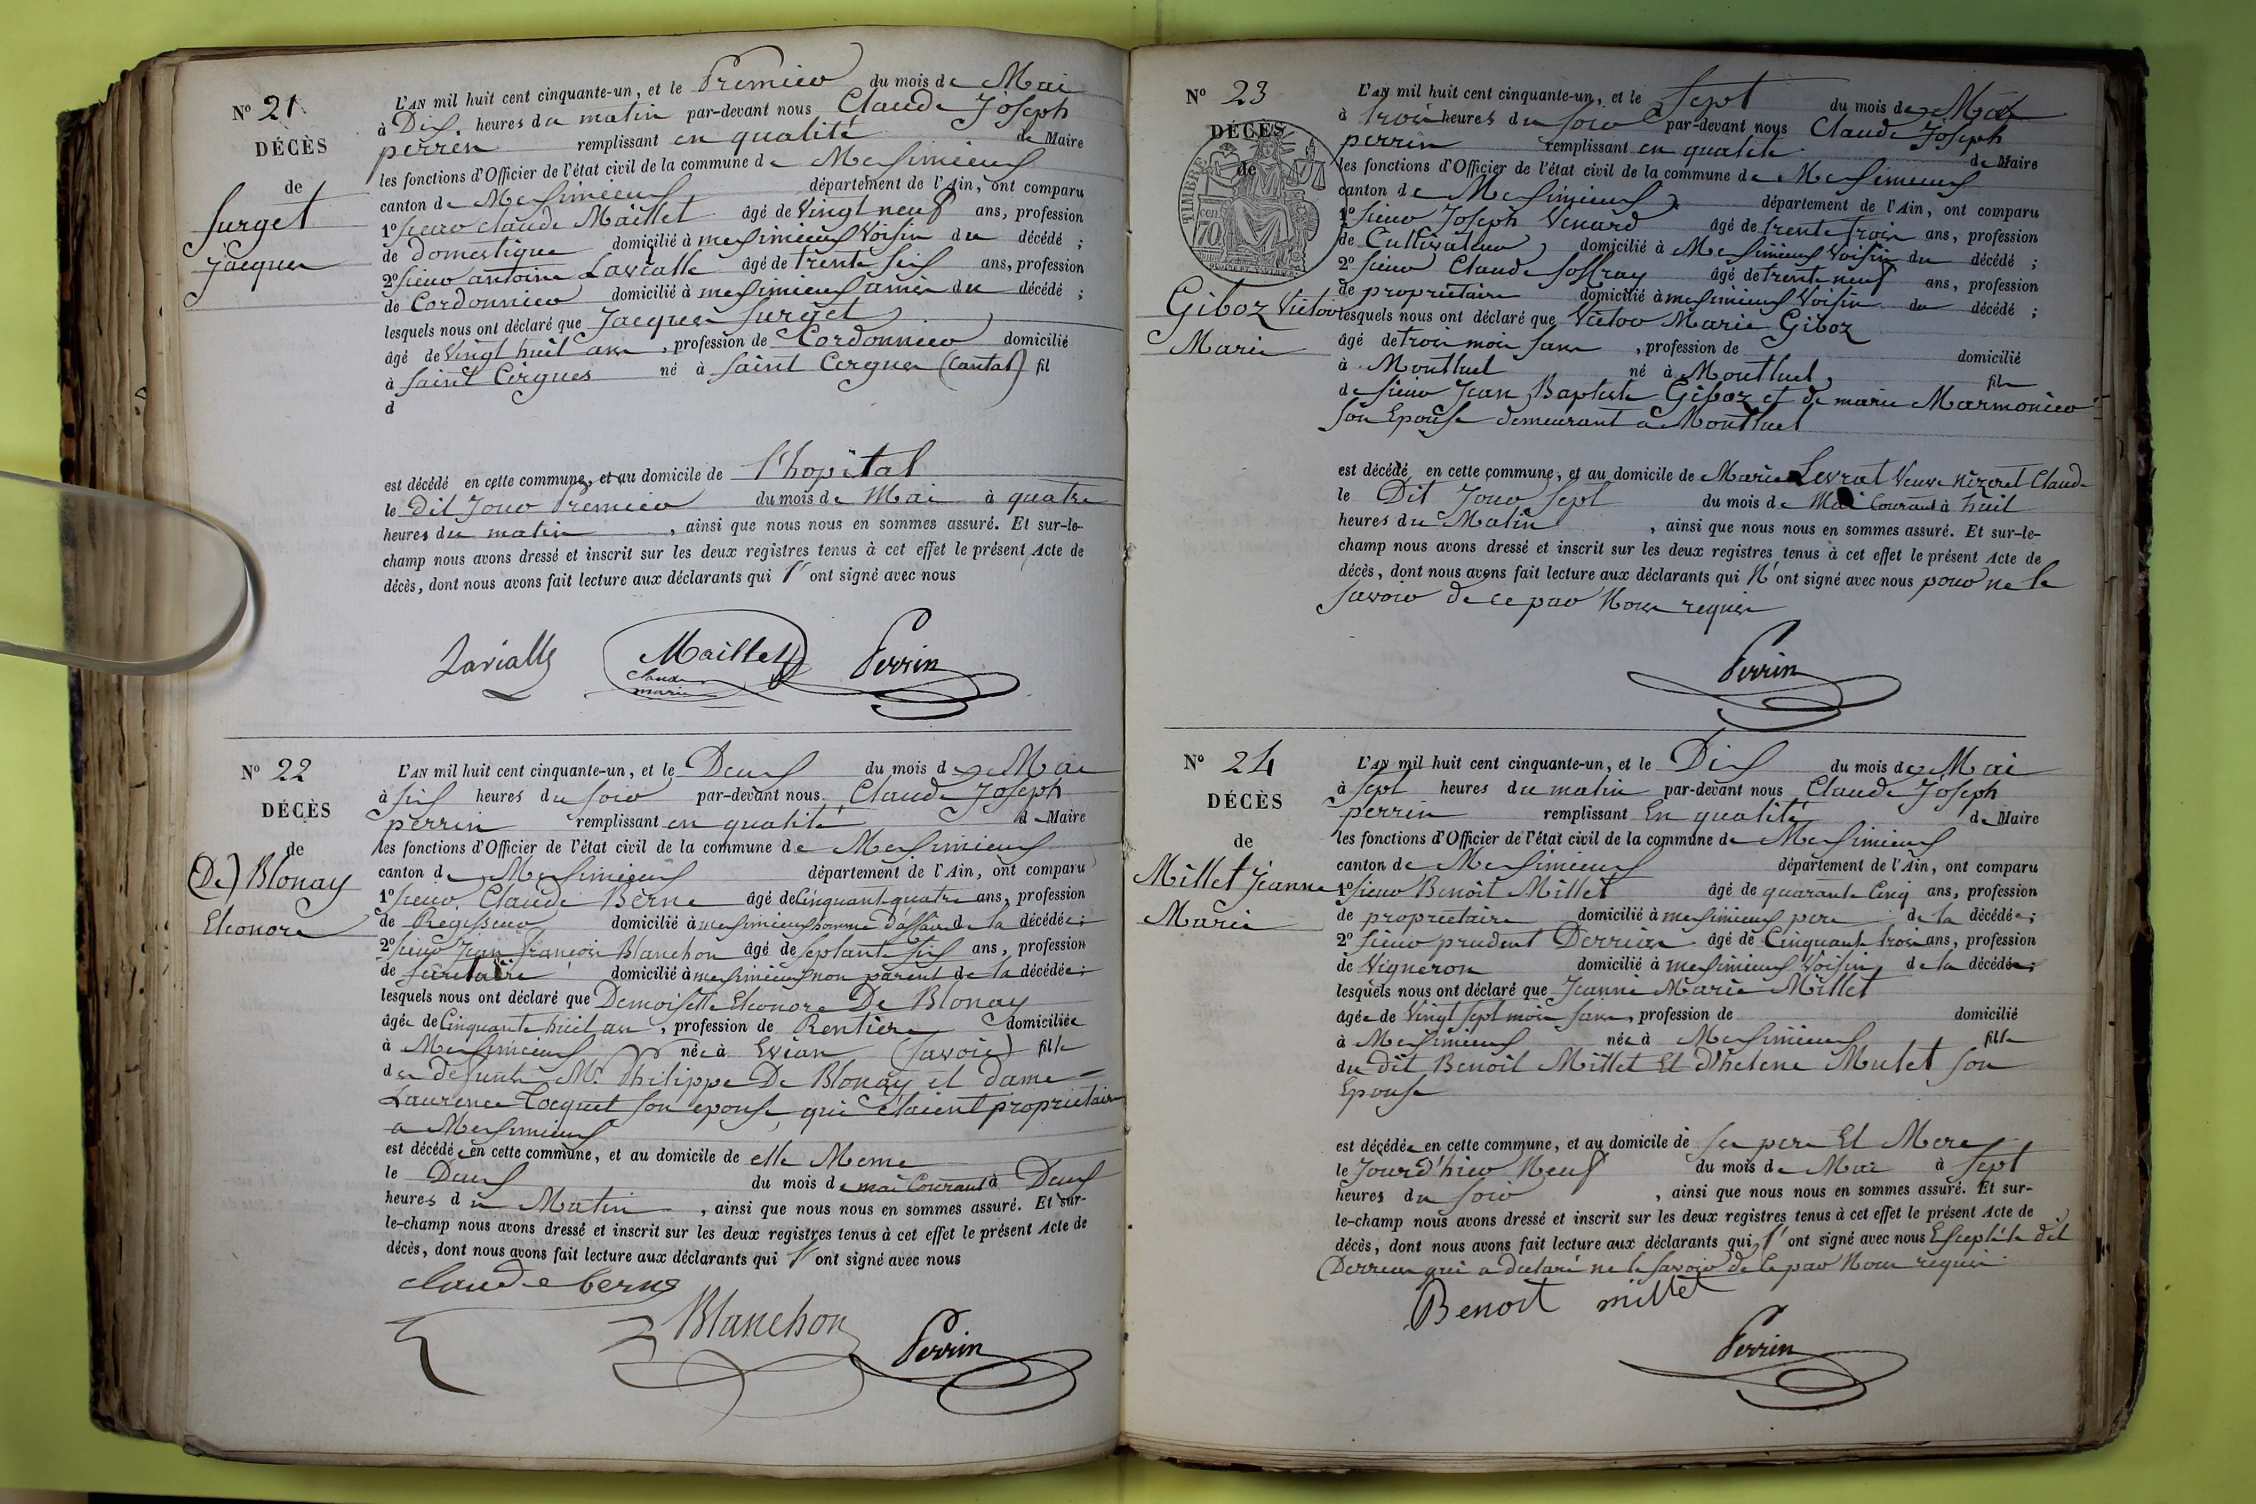 No 21
DÉCÈS
de
Surget
Jacques
L'AN mil huit cent cinquante-un, et le Premier du mois de Mai
à Dix heures du matin par-devant nous Claude Joseph
perrin remplissant en qualité de Maire
les fonctions d'Officier de l'état civil de la commune de Meximieux
canton de Meximieux département de l'Ain, ont comparu
1o Sieur Claude Maillet âgé de Vingt neuf ans, profession
de domestique domicilié à meximieux Voisin du décédé ;
2o Sieur antoine Lavialle âgé de trente six ans, profession
de Cordonnier domicilié à meximieux amis du décédé ;
lesquels nous ont déclaré que Jacques Surget
âgé de Vingt huit ans, profession de Cordonnier domicilié
à Saint Cirgues né à Saint Cirgues (Cantal) fil
d
est décédé en cette commune, et au domicile de l'hopital
le dit Jour Premier du mois de Mai à quatre
heures du matin, ainsi que nous nous en sommes assuré. Et sur-le-
champ nous avons dressé et inscrit sur les deux registres tenus à cet effet le présent Acte de
décès, dont nous avons fait lecture aux déclarants qui l' ont signé avec nous
Lavialle Maillet Perrin
Claude
marie
No 22
DÉCÈS
de
(De) Blonay
Eleonore
L'AN mil huit cent cinquante-un, et le Deux du mois de Mai
à six heures du soir par-devant nous Claude Joseph
perrin remplissant en qualité de Maire
les fonctions d'Officier de l'état civil de la commune de Meximieux
canton de Meximieux département de l'Ain, ont comparu
1o Sieur Claude Berne âgé de Cinquante quatre ans, profession
de Regisseur domicilié à meximieux homme d'affaire de la décédée ;
2o Sieur Jean françois Blanchon âgé de Septante six ans, profession
de secretaire domicilié à meximieux non parent de la décédée ;
lesquels nous ont déclaré que Demoiselle Eleonore De Blonay
âgée de Cinquante huit ans, profession de Rentiere domiciliée
à Meximieux née à Evian (Savoie) fille
de defunts Mr. Philippe De Blonay et dame
Laurence Tocquet son epouse, qui étaient proprietaire
a Meximieux
est décédée en cette commune, et au domicile de elle Meme
le Deux du mois de mai Courant à Deux
heures du Matin, ainsi que nous nous en sommes assuré. Et sur-
le-champ nous avons dressé et inscrit sur les deux registres tenus à cet effet le présent Acte de
décès, dont nous avons fait lecture aux déclarants qui l' ont signé avec nous
claude berne
Blanchon Perrin
No 23
DÉCÈS
de
TIMBRE
70
Giboz Victor
Marie
L'AN mil huit cent cinquante-un, et le Sept du mois de Mai
à trois heures du soir par-devant nous Claude Joseph
perrin remplissant en qualité de Maire
les fonctions d'Officier de l'état civil de la commune de Meximieux
canton de Meximieux département de l'Ain, ont comparu
1o Sieur Joseph Venard âgé de trente trois ans, profession
de Cultivateur domicilié à Meximieux Voisin du décédé ;
2o Sieur Claude Soffray âgé de trente neuf ans, profession
de proprietaire domicilié à meximieux Voisin du décédé ;
lesquels nous ont déclaré que Victor Marie Giboz
âgé de trois mois sans, profession de domicilié
à Montluel né à Montluel, fils
de sieur Jean Baptiste Giboz et de marie Marmonier
son Epouse demeurant a Montluel
est décédé en cette commune, et au domicile de Marie Levrat Veuve Nizeret Claude
le Dit Jour sept du mois de Mai Courant à huit
heures du Matin, ainsi que nous nous en sommes assuré. Et sur-le-
champ nous avons dressé et inscrit sur les deux registres tenus à cet effet le présent Acte de
décès, dont nous avons fait lecture aux déclarants qui N' ont signé avec nous pour ne le
savoir de ce par Nous requis
Perrin
No 24
DÉCÈS
de
Millet Jeanne
Marie
L'AN mil huit cent cinquante-un, et le Dix du mois de Mai
à sept heures du matin par-devant nous Claude Joseph
perrin remplissant En qualité de Maire
les fonctions d'Officier de l'état civil de la commune de Meximieux
canton de Meximieux département de l'Ain, ont comparu
1o Sieur Benoit Millet âgé de quarante Cinq ans, profession
de proprietaire domicilié à meximieux pere de la décédée ;
2o Sieur prudent Derrier âgé de Cinquante trois ans, profession
de Vigneron domicilié à meximieux Voisin de la décédée ;
lesquels nous ont déclaré que Jeanne Marie Millet
âgée de Vingt sept mois sans, profession de domicilié
à Meximieux née à Meximieux fille
du dit Benoit Millet Et d'helene Mulet son
Epouse
est décédée en cette commune, et au domicile de ses pere Et Mere
le Jour d'hier Neuf du mois de Mai à sept
heures du soir, ainsi que nous nous en sommes assuré. Et sur-
le-champ nous avons dressé et inscrit sur les deux registres tenus à cet effet le présent Acte de
décès, dont nous avons fait lecture aux déclarants qui l' ont signé avec nous Excepté le dit
Derrier qui a declaré ne le savoir de Ce par Nous requis
Benoit millet
Perrin